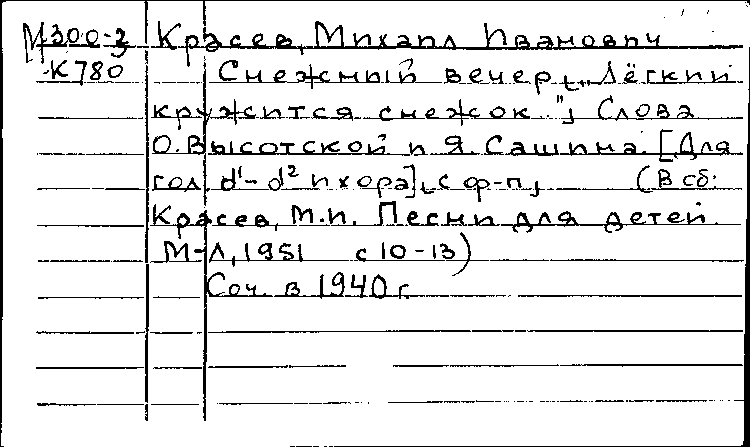 М300-3 Красев, Михаил Иванович
К780 Снежный вечер [„Лёгкий
кружится снежок..."] Слова
О. Высотской и Я. Сашина. [Для
гол. d¹-d² и хора] [с ф-п] (В сб:
Красев, М.И. Песни для детей.
М-Л, 1951 с 10-13)
Соч. в 1940 г.